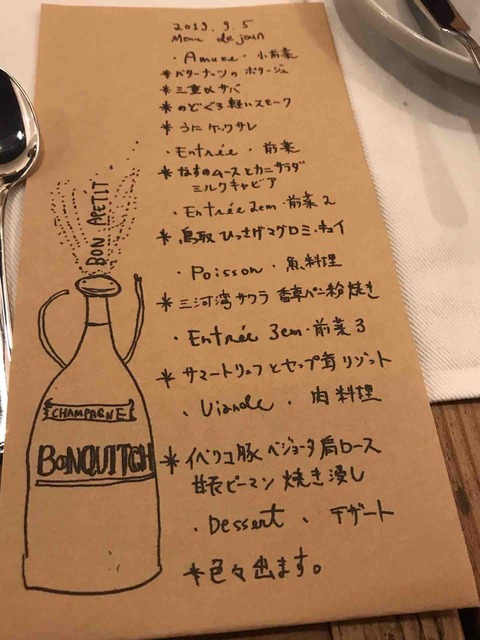 2019. 9. 5
Menu de jour
・Amuse・小前菜
*バターナッツの ポタージュ
*三重〆サバ
*のどぐろ 軽いスモーク
*うに ケックサレ
・Entrée・前菜
*なすのムースとカニサラダ
ミルクキャビア
・Entrée 2em・前菜2
*鳥取 ひっさげマグロ ミ・キュイ
・Poisson・魚料理
*三河湾サワラ 香草パン粉焼き
・Entrée 3em・前菜3
*サマートリュフとセップ茸リゾット
・Viande・肉料理
*イベリコ豚 ベジョータ 肩ロース
甘長ピーマン 焼き浸し
・Dessert、デザート
*色々出ます。
BON APETIT
CHAMPAGNE
BONQUITCH